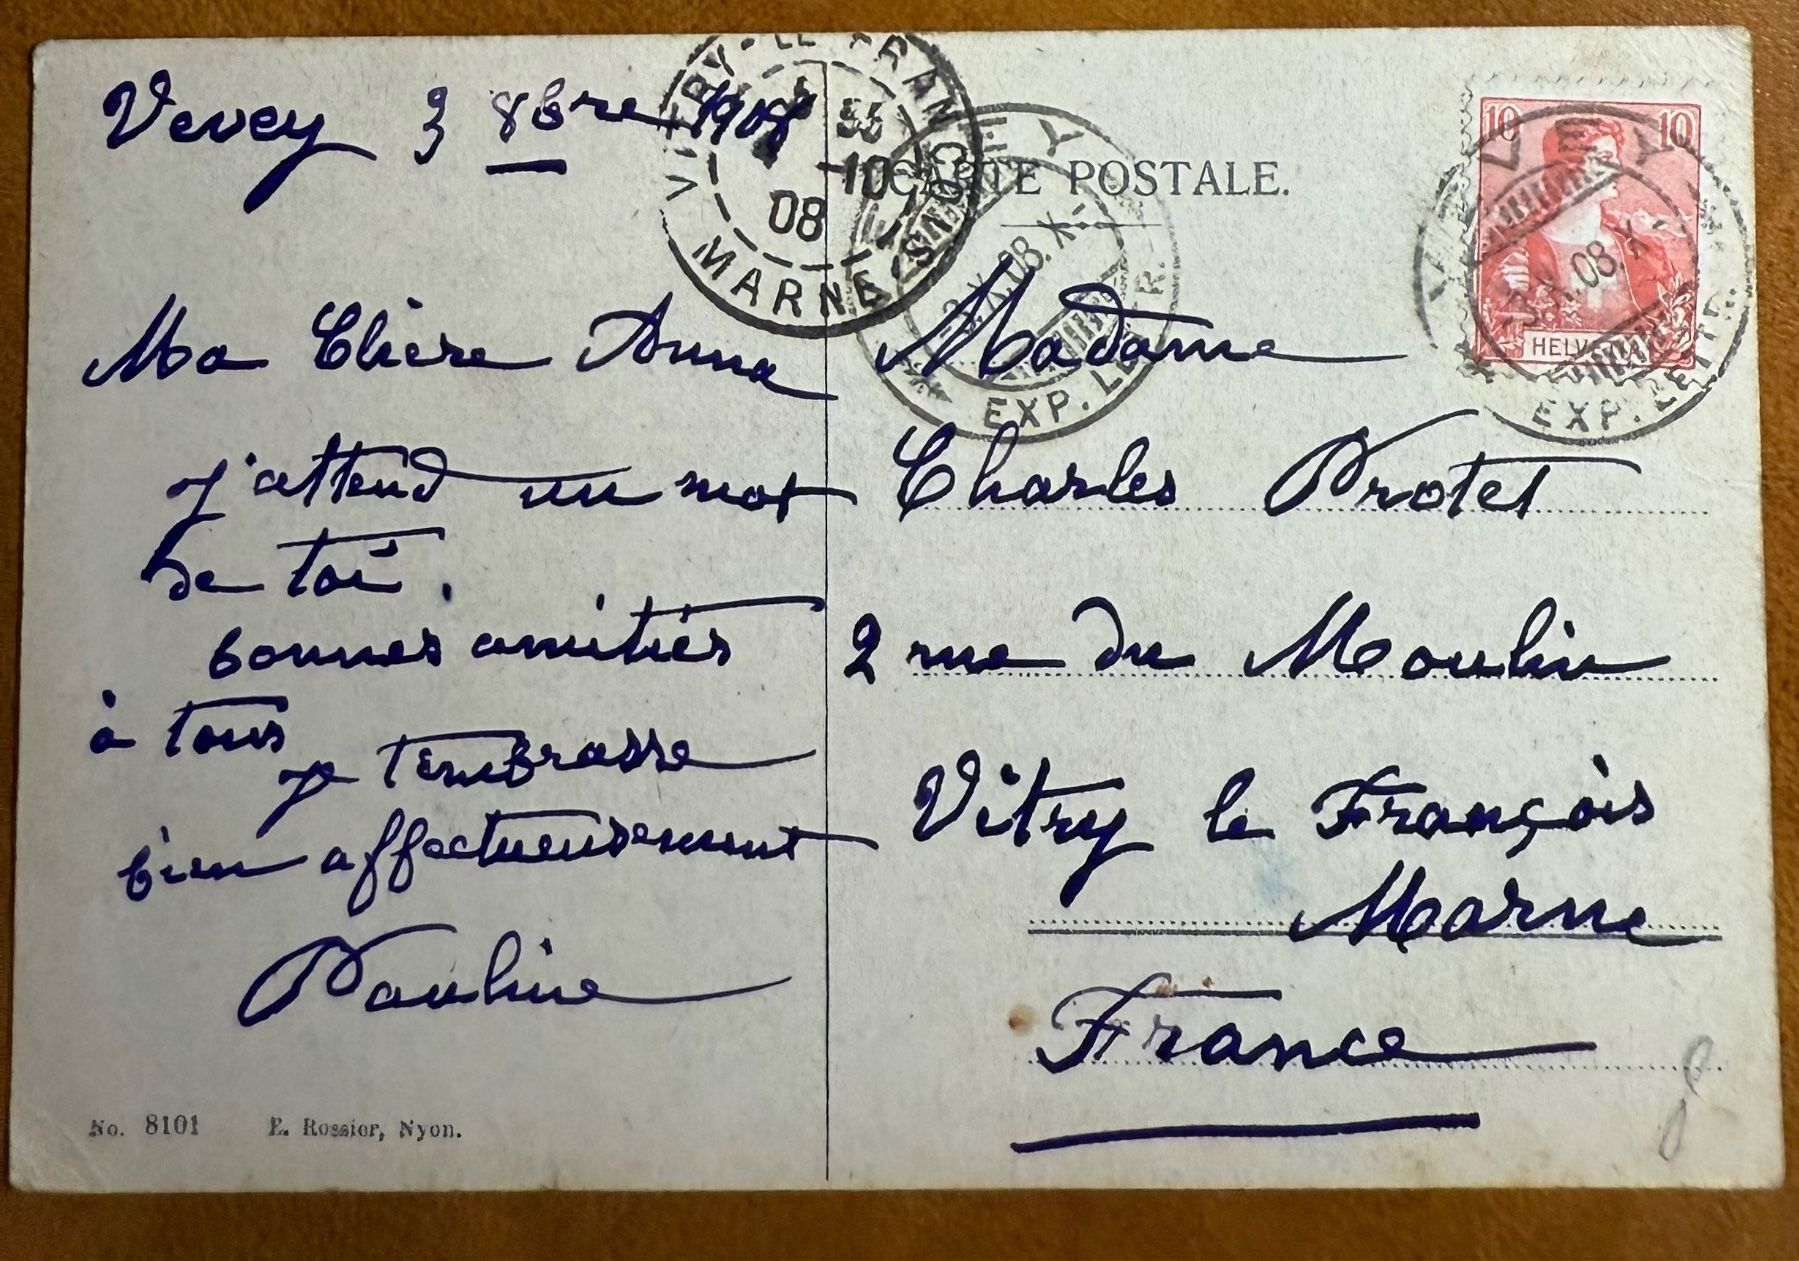 Vevey 3 8bre 1908
Ma Chère Anna
j'attend un mot
de toi.
bonnes amitiés
à tous
je t'embrasse
bien affectueusement
Pauline
No. 8101 E. Rossier, Nyon.
CARTE POSTALE.
Madame
Charles Protet
2 rue du Moulin
Vitry le François
Marne
France
VITRY-LE-FRAN
55
-10
08
MARNE
EY
-3.X.08.X-
EXP. LETTR.
10 10
HELVETIA
VEVEY
-3.X.08.X-
EXP. LETTR.